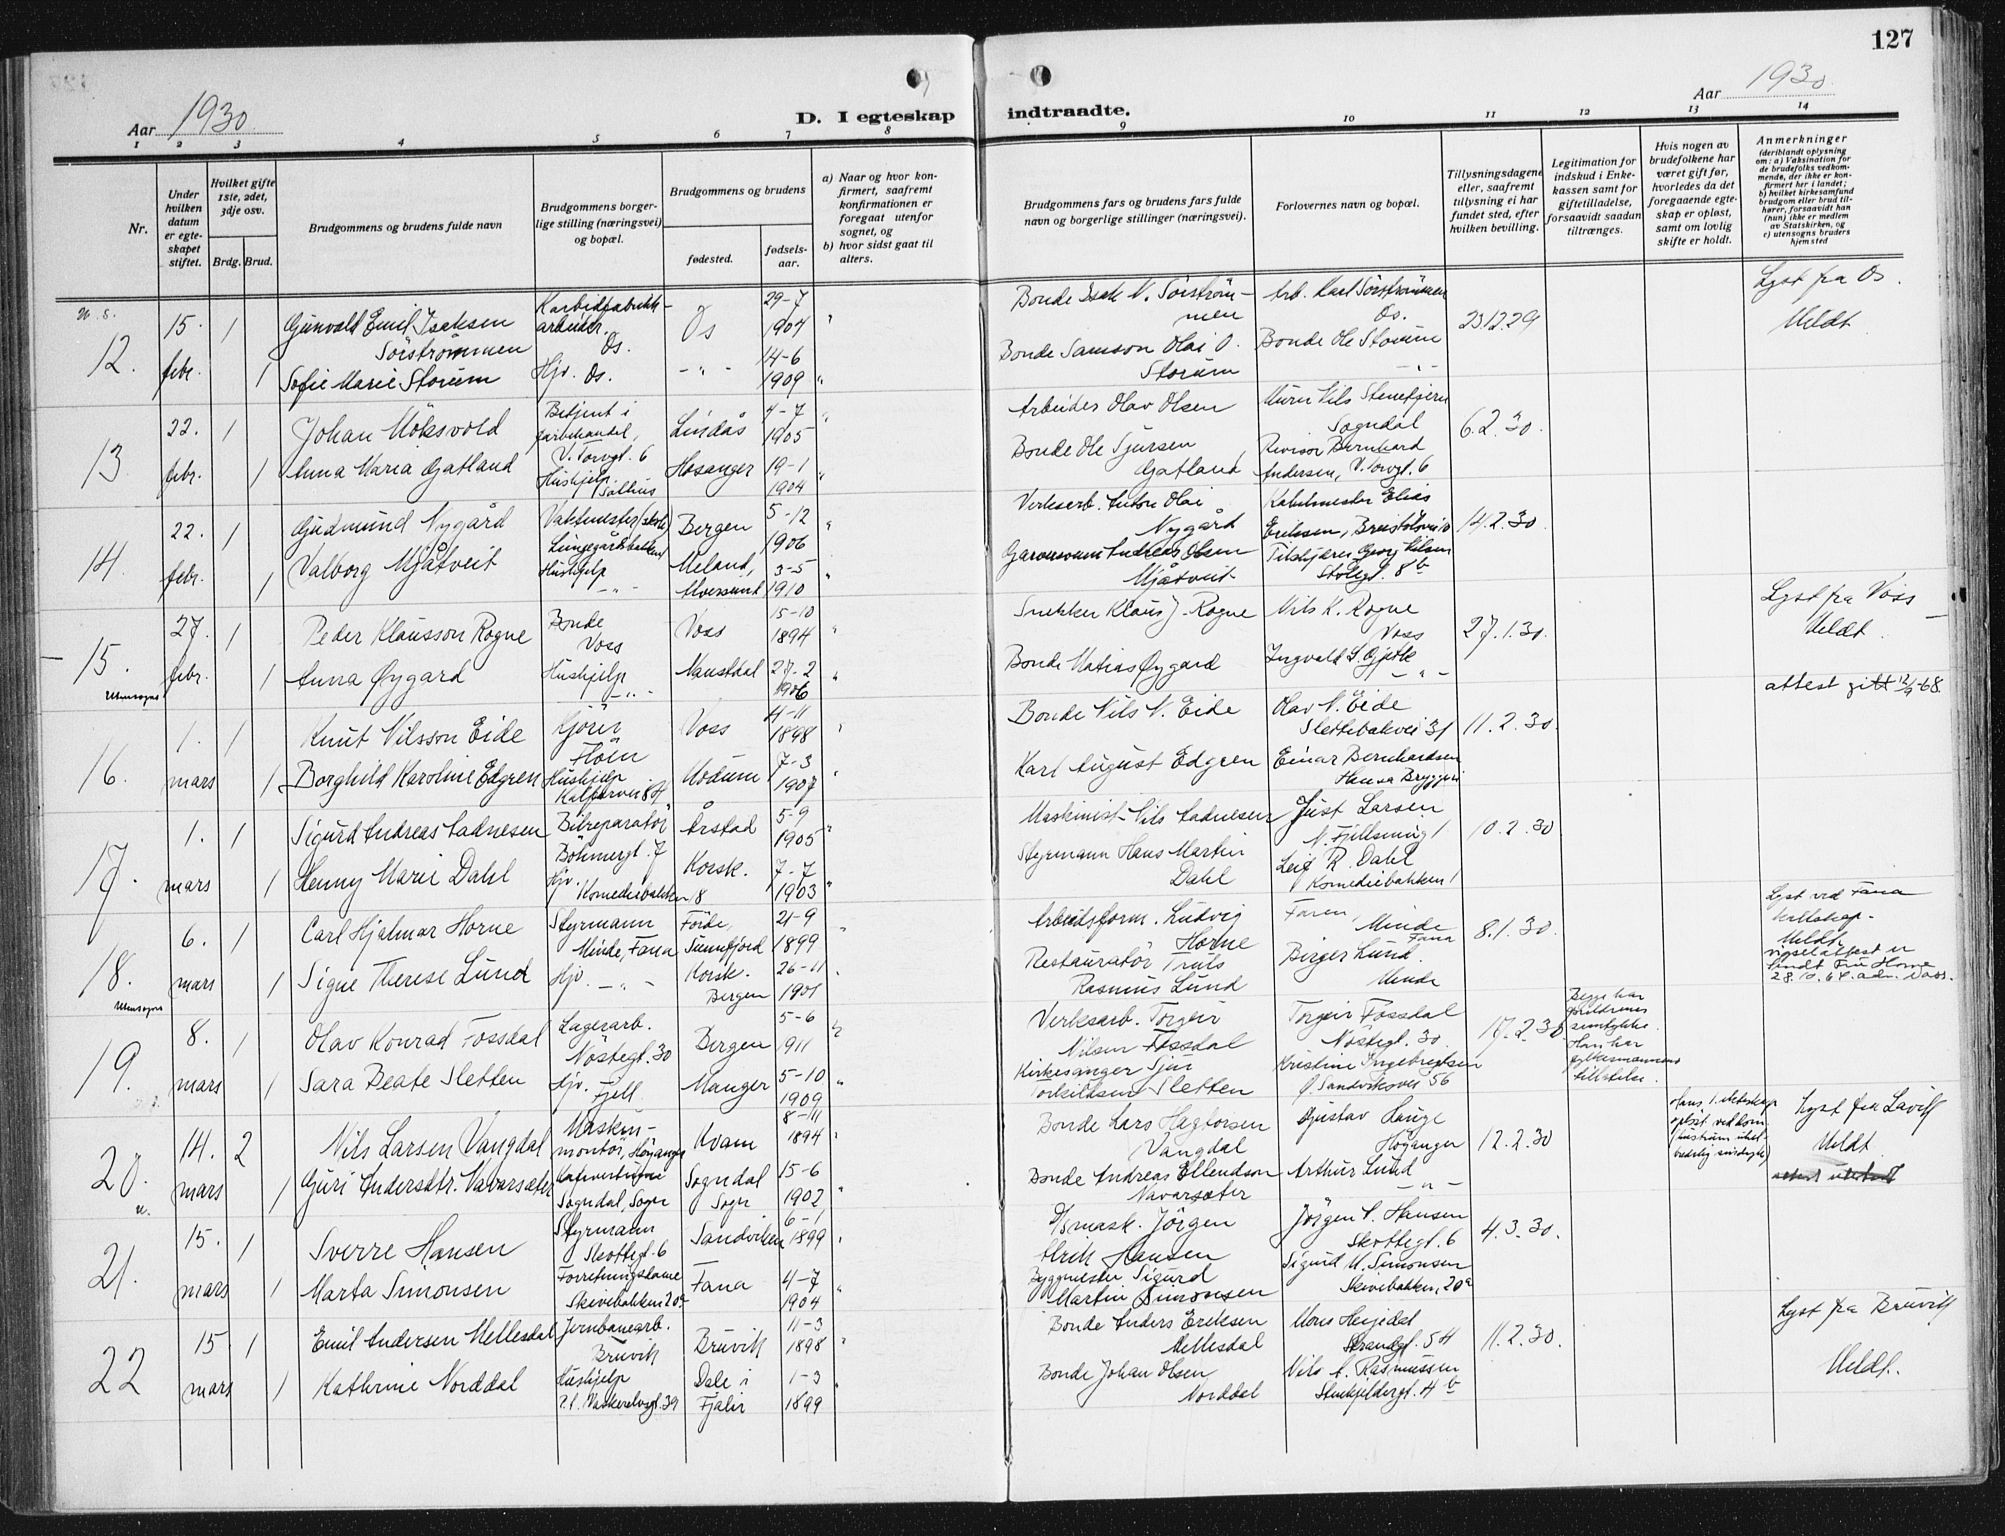 127
Aar 1930
D. I egteskap indtraadte.
Aar 1930
1 2 3 4 5 6 7 8 9 10 11 12 13 14
Nr.
Under hvilken datum er egteskapet stiftet.
Hvilket gifte 1ste, 2det, 3dje osv.
Brdg. Brud.
Brudgommens og brudens fulde navn
Brudgommens borgerlige stilling (næringsvei) og bopæl.
Brudgommens og brudens
fødested.
fødsels-aar.
a) Naar og hvor konfirmert, saafremt konfirmationen er foregaat utenfor sognet, og
b) hvor sidst gaat til alters.
Brudgommens fars og brudens fars fulde navn og borgerlige stillinger (næringsvei).
Forlovernes navn og bopæl.
Tillysningsdagene eller, saafremt tillysning ei har fundet sted, efter hvilken bevilling.
Legitimation for indskud i Enkekassen samt for giftetilladelse, forsaavidt saadan tiltrænges.
Hvis nogen av brudefolkene har været gift før, hvorledes da det foregaaende egteskap er opløst, samt om lovlig skifte er holdt.
Anmerkninger
(deriblandt oplysning om: a) Vaksination for de brudefolks vedkommende, der ikke er konfirmert her i landet; b) hvilket kirkesamfund brudgom eller brud tilhører, forsaavidt han (hun) ikke er medlem av Statskirken, og c) utensogns bruders hjemsted
12. 15. febr. 1
Gunvald Emil Isaksen Sörströmmen
Karbidfabrikkarbeider. Os.
Os
29-7 1907
Bonde Isak N. Sörströmmen
Arb. Karl Sörströmmen Os.
23.12.29
Lyst fra Os. Meldt
1 Sofie Marie Storum
Hjv. Os.
- " -
14-6 1909
Bonde Samson Olai O. Storum
Bonde Ole Storum - " -
13 22. febr. 1
Johan Möksvold
Betjent i farvehandel, V. Torvgt. 6
Lindås
4-7 1905
Arbeider Olav Olsen
Murer Nils Stenefjern Sogndal
6.2.30.
1 Anna Maria Gjatland
Hushjelp. Salhus
Hosanger
19-1 1904
Bonde Ole Sjursen Gjatland
Revisor Bernhard Andersen, V. Torvgt. 6
14. 22. febr. 1
Gudmund Nygård
Vaktmester Lungegårdsbakken
Bergen
5-12 1906
Verksarb. Anton Olai Nygård
Elias Eriksen,
14.2.30
1 Valborg Mjåtveit
Hushjelp - " -
Meland, Alversund
3-5 1910
Garversvenn Andreas Olsen Mjåtveit
Georg Nilsen Stölegt. 8b
15. Utensogns 27. febr. 1
Peder Klausson Rogne
Bonde Voss
Voss
15-10 1894
Snekker Klaus J. Rogne
Nils K. Rogne Voss
27.1.30.
Lyst fra Voss Meldt.
1 Anna Øygard
Hushjelp - " -
Naustdal
27-2 1906
Bonde Matias Øygard
Ingvald S. Gjerde - " -
attest gitt 12/9-68.
16. 1. mars 1
Knut Nilsson Eide
Kjörer Flöen
Voss
4-11 1898
Bonde Nils N. Eide
Olav N. Eide Slettebakvei 31
11.2.30.
1 Borghild Karoline Edgren
Hushjelp Kalfarvei 84
Modum
7-3 1907
Karl August Edgren
Einar Bernhardsen Hansa Bryggeri
17. 1. mars 1
Sigurd Andreas Ladnesen
Bilreparatör Böhmergt. 7
Årstad
5-9 1905
Maskinist Nils Ladnesen
Just Larsen N. Fjellsmug 1
10.2.30
1 Henny Marie Dahl
Hjv. Komediebakken 8
Korsk.
7-7 1903
Styrmann Hans Martin Dahl
Leif R. Dahl Komediebakken 1
18. Utensogns 6. mars 1
Carl Hjalmar Horne
Styrmann Minde, Fana
Förde, Sunnfjord
21-9 1899
Arbeidsform. Ludvig Horne
Faren, Minde Fana
8.1.30.
Lyst ved Fana Meldt. vigselattest er sendt Fru Horne 28.10.64.
1 Signe Therese Lund
Hjv. - " -
Korsk. Bergen
26-11 1901
Restauratör Truls Rasmus Lund
Birger Lund. Minde
19. 8. mars 1
Olav Konrad Fossdal
Lagerarb. Nöstegt. 30
Bergen
5-6 1911
Verksarb. Torgeir Nilsen Fossdal
Torgeir Fossdal Nöstegt. 30.
17.2.30
Begge har foreldrenes samtykke. Han har fylkesmannens tillatelse.
1 Sara Beate Sletten
Hjv. Fjell
Manger
5-10 1909
Kirkesanger Sjur Torkildsen Sletten
Kristine Ingebregtsen Ø. Sandviksvei 56
20. 14. mars 2
Nils Larsen Vangdal
Maskinmontör, Höyanger
Kvam
8-11 1894
Bonde Lars Hagtorsen Vangdal
Gustav Lauge Höyanger
12.2.30
Hans 1. ekteskap oplöst ved
Lyst fra Lavik Meldt.
1 Guri Andersdtr. Navarsæter
Sogndal, Sogn
Sogndal Sogn
15-6 1902
Bonde Andreas Ellendson Navarsæter
Arthur Lund - " -
21. 15. mars 1
Sverre Hansen
Styrmann Skottegt. 6
Sandviken
6-1 1899
Jörgen Ulrik Hansen
Jörgen U. Hansen Skottegt. 6
4.3.30.
1 Marta Simonsen
Forretningsdame Skivebakken 20a
Fana
4-7 1904
Byggmester Sigurd Martin Simonsen
Sigurd M. Simonsen Skivebakken, 20a
22 15. mars 1
Emil Andersen Mellesdal
Jernbanearb. Bruvik
Bruvik
11-3 1898
Bonde Anders Eriksen Mellesdal
Mons Heijedal Strandgt. 54
11.2.30.
Lyst fra Bruvik Meldt.
1 Kathrine Norddal
Hushjelp
Dale i Fjaler
1-3 1899
Bonde Johan Olsen Norddal
Nils A. Rasmussen Stenkjeldergt. 4b